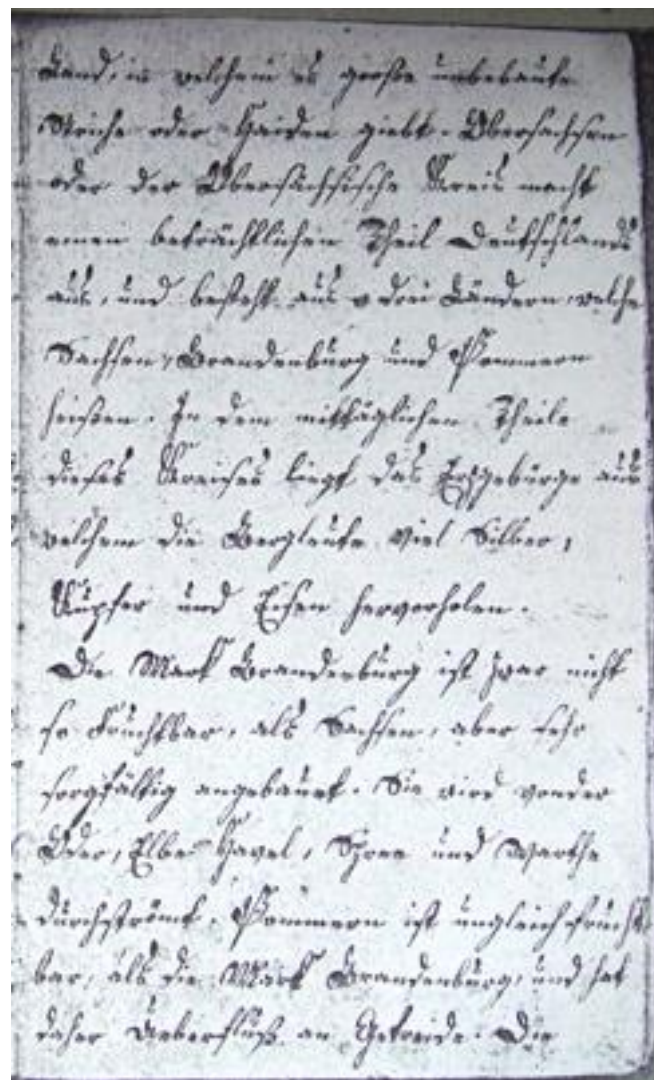 Land, in welchem es große unbebaute
Striche oder Haiden giebt. Obersachsen
oder der Obersächsische Kreis macht
einen beträchtlichen Theil Deutschlands
aus, und besteht aus drei Ländern, welche
Sachsen, Brandenburg und Pommern
heißen. In dem mittäglichen Theile
dieses Kreises liegt das Erzgebürge aus
welchem die Bergleute viel Silber,
Kupfer und Eisen hervorholen.
Die Mark Brandenburg ist zwar nicht
so fruchtbar, als Sachsen, aber sehr
sorgfältig angebauet. Sie wird von der
Oder, Elbe Havel, Spree und Warthe
durchströmt. Pommern ist ungleich frucht
bar, als die Mark Brandenburg, und hat
daher Ueberfluß an Getreide. Die